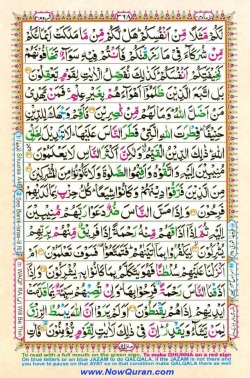 لَكُمْ مَّثَلًا مِّنْ اَنْفُسِكُمْ هَلْ لَّكُمْ مِّنْ مَّا مَلَكَتْ اَيْمَانُكُمْ
مِّنْ شُرَكَآءَ فِىْ مَا رَزَقْنٰكُمْ فَاَنْتُمْ فِيْهِ سَوَآءٌ تَخَافُوْنَهُمْ
كَخِيْفَتِكُمْ اَنْفُسَكُمْ كَذٰلِكَ نُفَصِّلُ الْاٰيٰتِ لِقَوْمٍ يَّعْقِلُوْنَ
بَلِ اتَّبَعَ الَّذِيْنَ ظَلَمُوْۤا اَهْوَآءَهُمْ بِغَيْرِ عِلْمٍ فَمَنْ يَّهْدِىْ
مَنْ اَضَلَّ اللّٰهُ وَمَا لَهُمْ مِّنْ نّٰصِرِيْنَ فَاَقِمْ وَجْهَكَ لِلدِّيْنِ
حَنِيْفًا فِطْرَتَ اللّٰهِ الَّتِىْ فَطَرَ النَّاسَ عَلَيْهَا لَا تَبْدِيْلَ لِخَلْقِ
اللّٰهِ ذٰلِكَ الدِّيْنُ الْقَيِّمُ وَلٰكِنَّ اَكْثَرَ النَّاسِ لَا يَعْلَمُوْنَ
مُنِيْبِيْنَ اِلَيْهِ وَاتَّقُوْهُ وَاَقِيْمُوا الصَّلٰوةَ وَلَا تَكُوْنُوْا مِنَ الْمُشْرِكِيْنَ
مِنَ الَّذِيْنَ فَرَّقُوْا دِيْنَهُمْ وَكَانُوْا شِيَعًا كُلُّ حِزْبٍۢ بِمَا لَدَيْهِمْ
فَرِحُوْنَ وَاِذَا مَسَّ النَّاسَ ضُرٌّ دَعَوْا رَبَّهُمْ مُّنِيْبِيْنَ
اِلَيْهِ ثُمَّ اِذَاۤ اَذَاقَهُمْ مِّنْهُ رَحْمَةً اِذَا فَرِيْقٌ مِّنْهُمْ بِرَبِّهِمْ
يُشْرِكُوْنَ لِيَكْفُرُوْا بِمَاۤ اٰتَيْنٰهُمْ فَتَمَتَّعُوْا فَسَوْفَ تَعْلَمُوْنَ
اَمْ اَنْزَلْنَا عَلَيْهِمْ سُلْطٰنًا فَهُوَ يَتَكَلَّمُ بِمَا كَانُوْا بِهٖ يُشْرِكُوْنَ وَاِذَاۤ
اَذَقْنَا النَّاسَ رَحْمَةً فَرِحُوْا بِهَا وَاِنْ تُصِبْهُمْ سَيِّئَةٌۢ بِمَا قَدَّمَتْ
اَيْدِيْهِمْ اِذَا هُمْ يَقْنَطُوْنَ اَوَلَمْ يَرَوْا اَنَّ اللّٰهَ يَبْسُطُ الرِّزْقَ
لِمَنْ يَّشَآءُ وَيَقْدِرُ اِنَّ فِىْ ذٰلِكَ لَاٰيٰتٍ لِّقَوْمٍ يُّؤْمِنُوْنَ فَاٰتِ
To read with a full mouth on the green sign, To make GHUNNA on a red sign
On blue letters or on blue JAZAM to do QALQALA. If the JAZAM is not there and
you have to pause on that AYAT so in that condition make QALQALA there as well
www.NowQuran.com